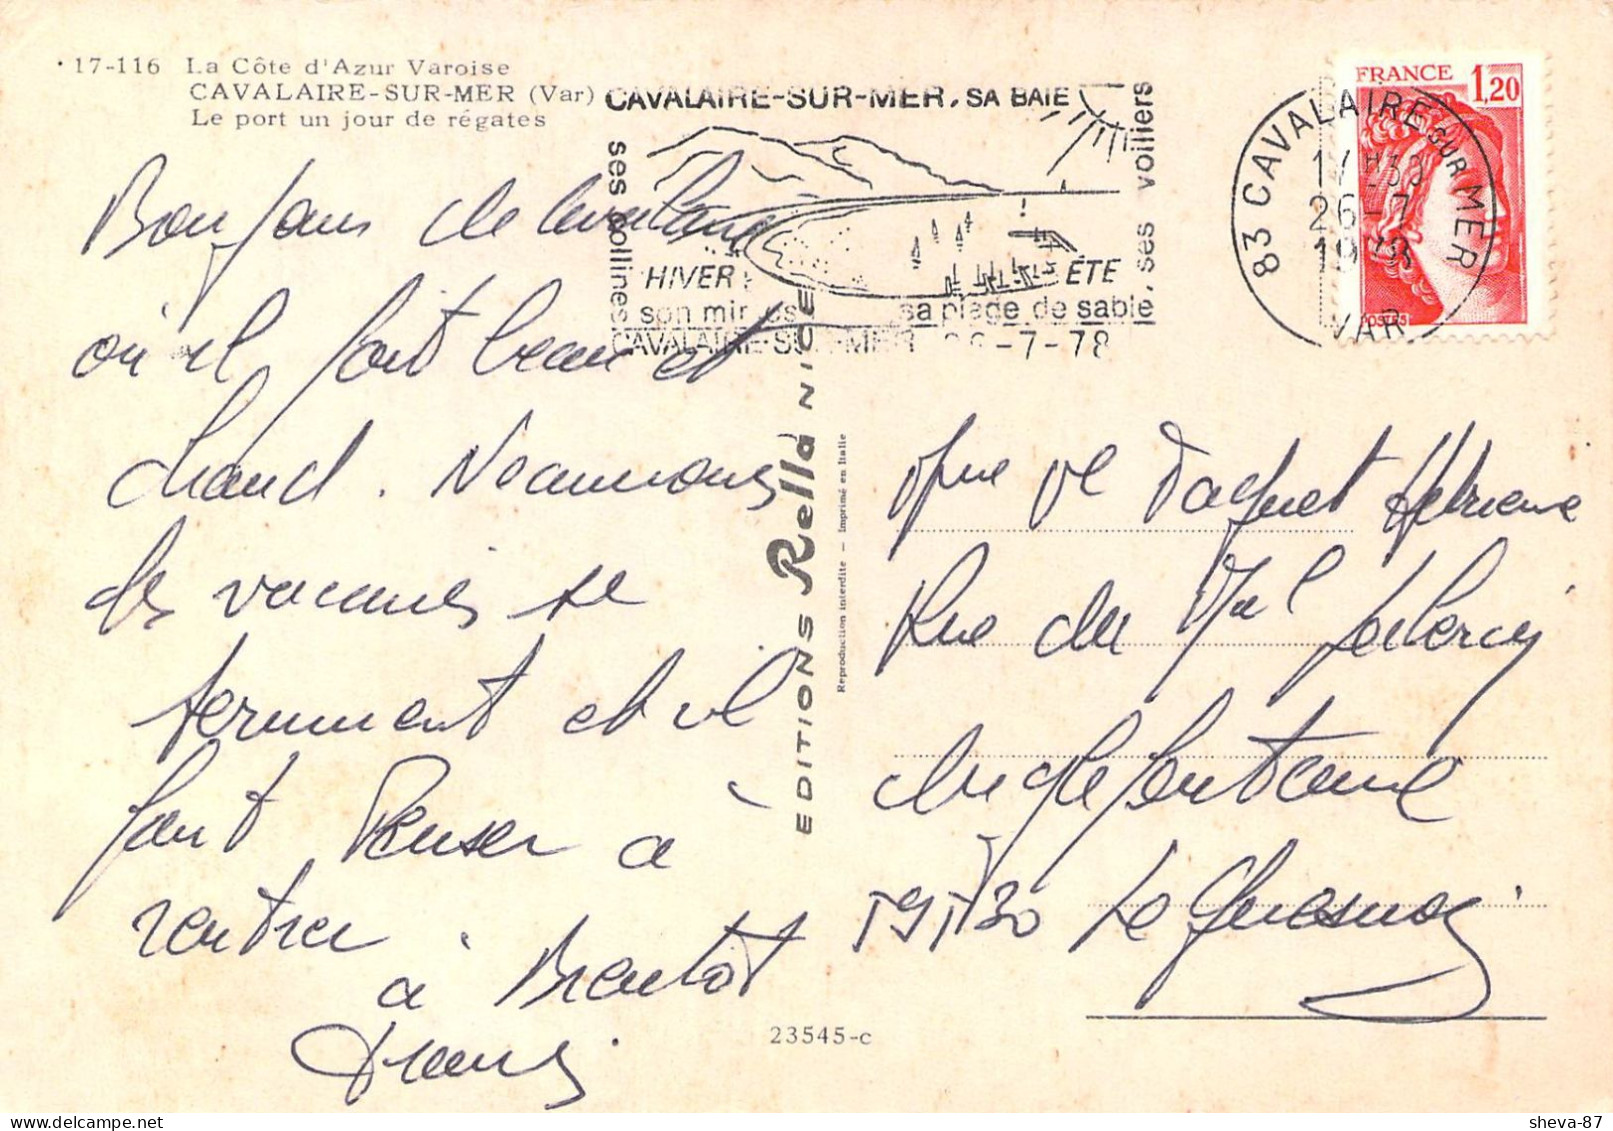 17-116 La Côte d'Azur Varoise
CAVALAIRE-SUR-MER (Var)
Le port un jour de régates
CAVALAIRE-SUR-MER, SA BAIE
ses collines
ses voiliers
HIVER
ÉTÉ
son mimosas
sa plage de sable,
CAVALAIRE-SUR-MER 26-7-78
FRANCE 1,20
POSTES
83 CAVALAIRE SUR MER
17H30
26-7
1978
VAR
Bonjour de Cavalaire
où il fait beau et
chaud. Néanmoins
les vacances se
terminent et il
faut Penser à
rentrer
à Bientôt
EDITIONS Rella NICE
Reproduction interdite — Imprimé en Italie
Mme Daquet
Rue du Mal Leclercq
Englefontaine
59530 Le Quesnoy
23545-c
sheva-87